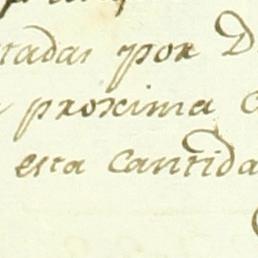 tadas por D
proxima c
esta cantida